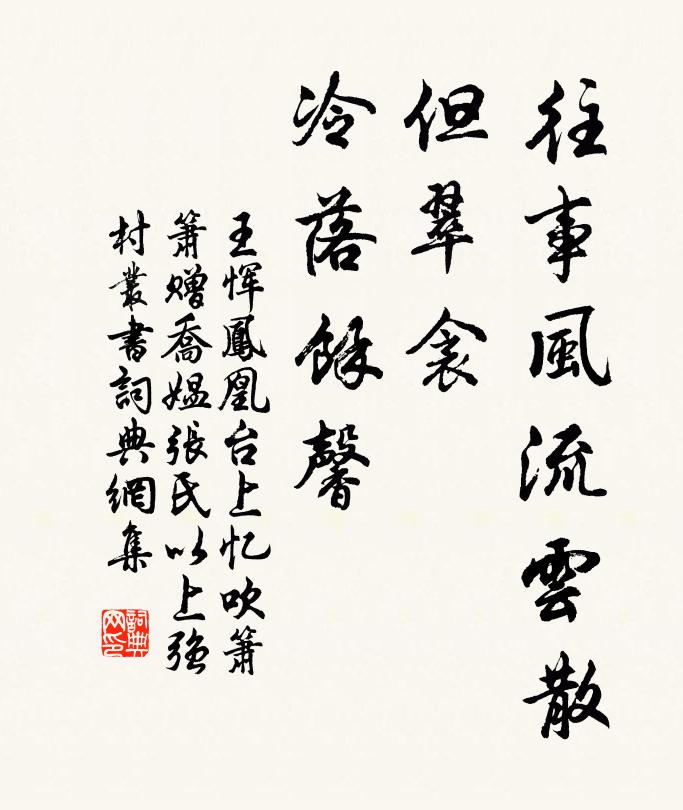 往事風流雲散
但翠衾
冷落餘馨
王恽鳳凰台上忆吹箫
箫贈喬媪張氏以上强
村叢書詞典網集
詞典
网印